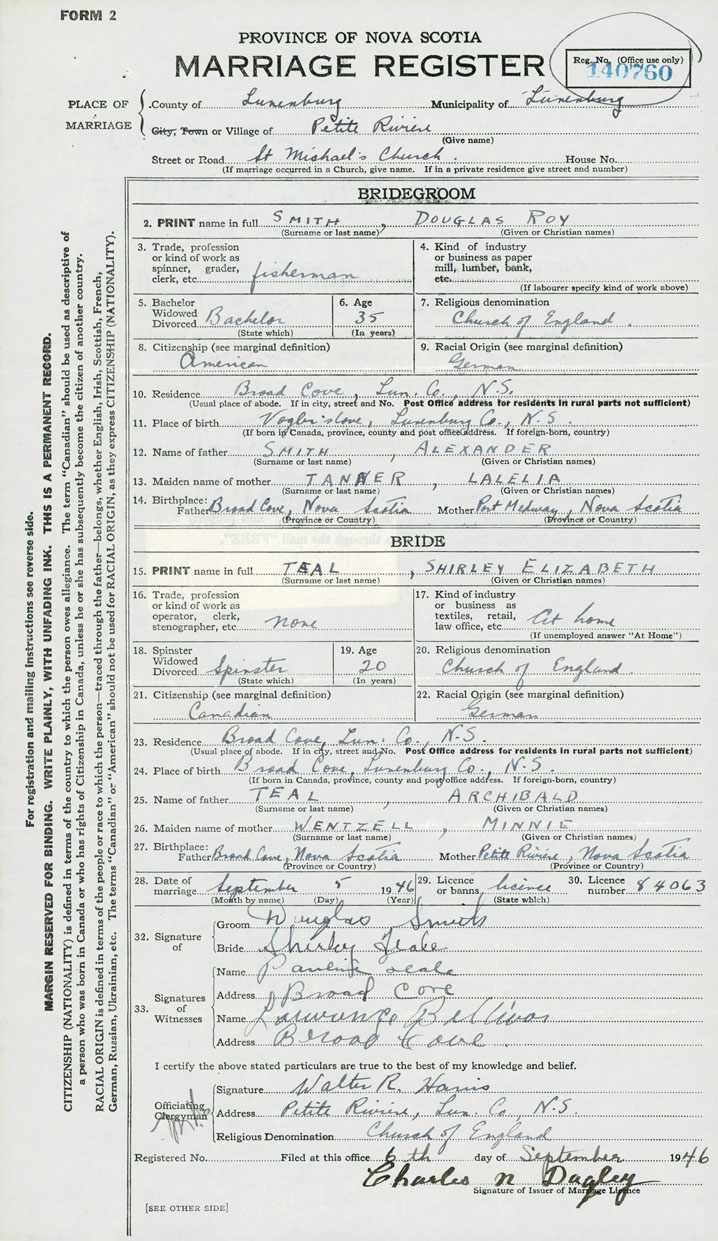 FORM 2
PROVINCE OF NOVA SCOTIA
MARRIAGE REGISTER
Reg. No. (Office use only)
140760
PLACE OF MARRIAGE
County of Lunenburg Municipality of Lunenburg
City, Town or Village of Petite Riviere
(Give name)
Street or Road St Michael's Church. House No.
(If marriage occurred in a Church, give name. If in a private residence give street and number)
BRIDEGROOM
2. PRINT name in full SMITH, DOUGLAS ROY
(Surname or last name) (Given or Christian names)
3. Trade, profession or kind of work as spinner, grader, clerk, etc. fisherman
4. Kind of industry or business as paper mill, lumber, bank, etc.
(If labourer specify kind of work above)
5. Bachelor Widowed Divorced Bachelor
(State which)
6. Age 35
(In years)
7. Religious denomination
Church of England.
8. Citizenship (see marginal definition)
American
9. Racial Origin (see marginal definition)
German
10. Residence Broad Cove, Lun. Co., N.S.
(Usual place of abode. If in city, street and No. Post Office address for residents in rural parts not sufficient)
11. Place of birth Lunenburg Co., N.S.
(If born in Canada, province, county and post office address. If foreign-born, country)
12. Name of father SMITH, ALEXANDER
(Surname or last name) (Given or Christian names)
13. Maiden name of mother TANNER, LALELIA
(Surname or last name) (Given or Christian names)
14. Birthplace: Father Broad Cove, Nova Scotia Mother Port Medway, Nova Scotia
(Province or Country) (Province or Country)
BRIDE
15. PRINT name in full TEAL, SHIRLEY ELIZABETH
(Surname or last name) (Given or Christian names)
16. Trade, profession or kind of work as operator, clerk, stenographer, etc. none
17. Kind of industry or business as textiles, retail, law office, etc. At home
(If unemployed answer "At Home")
18. Spinster Widowed Divorced Spinster
(State which)
19. Age 20
(In years)
20. Religious denomination
Church of England.
21. Citizenship (see marginal definition)
Canadian
22. Racial Origin (see marginal definition)
German
23. Residence Broad Cove, Lun. Co., N.S.
(Usual place of abode. If in city, street and No. Post Office address for residents in rural parts not sufficient)
24. Place of birth Broad Cove, Lunenburg Co., N.S.
(If born in Canada, province, county and post office address. If foreign-born, country)
25. Name of father TEAL, ARCHIBALD
(Surname or last name) (Given or Christian names)
26. Maiden name of mother WENTZELL, MINNIE
(Surname or last name) (Given or Christian names)
27. Birthplace: Father Broad Cove, Nova Scotia Mother Petite Riviere, Nova Scotia
(Province or Country) (Province or Country)
28. Date of marriage September 5 1946 29. Licence or banns licence 30. Licence number 84063
(Month by name) (Day) (Year) (State which)
32. Signature of
Groom Douglas Smith
Bride Shirley Teale
33. Signatures of Witnesses
Name Pauline Teale
Address Broad Cove
Name Laurence
Address Broad Cove.
I certify the above stated particulars are true to the best of my knowledge and belief.
Officiating Clergyman
Signature Walter R. Harris
Address Petite Riviere, Lun. Co., N.S.
Religious Denomination Church of England
Registered No. Filed at this office 6th day of September 1946
Charles N Dagley
Signature of Issuer of Marriage Licence
[SEE OTHER SIDE]
For registration and mailing instructions see reverse side.
MARGIN RESERVED FOR BINDING. WRITE PLAINLY, WITH UNFADING INK. THIS IS A PERMANENT RECORD.
CITIZENSHIP (NATIONALITY) is defined in terms of the country to which the person owes allegiance. The term "Canadian" should be used as descriptive of
a person who was born in Canada or who has rights of Citizenship in Canada, unless he or she has subsequently become the citizen of another country.
RACIAL ORIGIN is defined in terms of the people or race to which the person—traced through the father—belongs, whether English, Irish, Scottish, French,
German, Russian, Ukrainian, etc. The terms "Canadian" or "American" should not be used for RACIAL ORIGIN, as they express CITIZENSHIP (NATIONALITY).